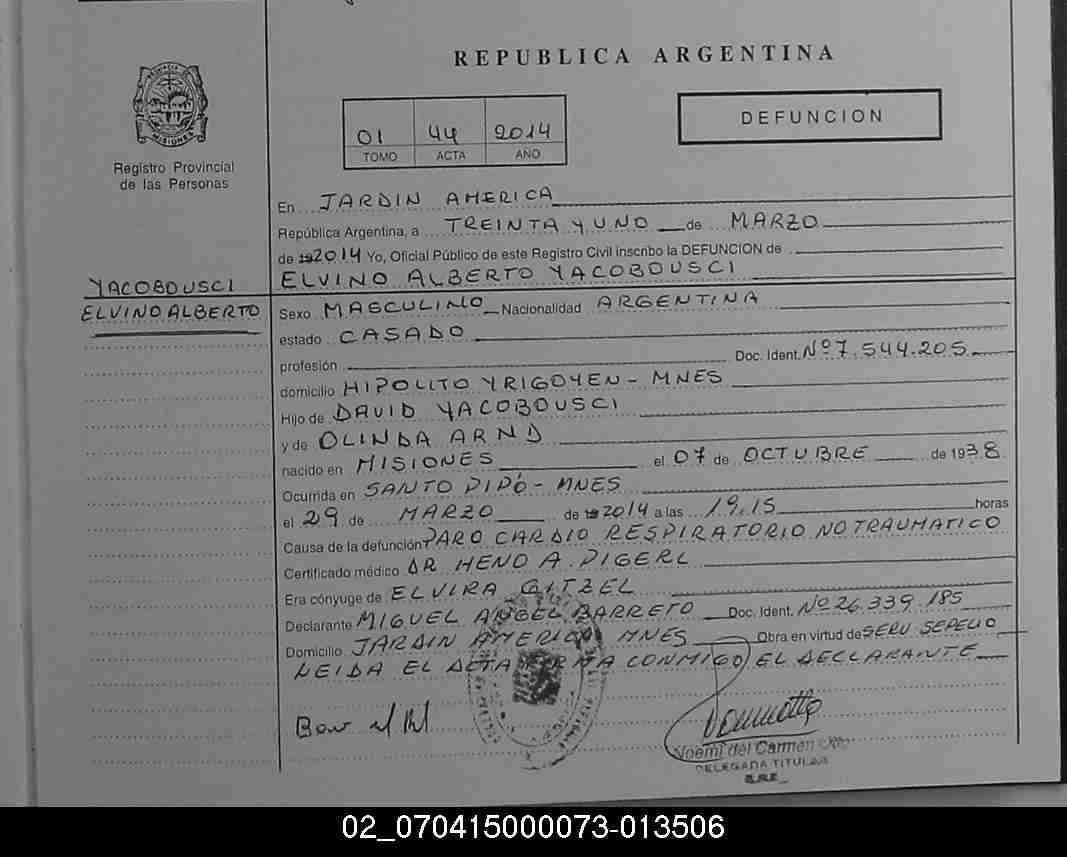 REPUBLICA ARGENTINA
PROVINCIA MISIONES
Registro Provincial
de las Personas
01 44 2014
TOMO ACTA AÑO
DEFUNCION
En JARDIN AMERICA
República Argentina, a TREINTA Y UNO de MARZO
de 2014 Yo, Oficial Público de este Registro Civil inscribo la DEFUNCION de
ELVINO ALBERTO YACOBOUSCI
YACOBOUSCI
ELVINO ALBERTO
Sexo MASCULINO Nacionalidad ARGENTINA
estado CASADO
profesión Doc. Ident. Nº 7.544.205
domicilio HIPOLITO YRIGOYEN - MNES
Hijo de DAVID YACOBOUSCI
y de OLINDA ARND
nacido en MISIONES el 07 de OCTUBRE de 1938
Ocurrida en SANTO PIPÓ - MNES
el 29 de MARZO de 2014 a las 19.15 horas
Causa de la defunción PARO CARDIO RESPIRATORIO NO TRAUMATICO
Certificado médico DR HENO A. PIGERL
Era cónyuge de ELVIRA GITZEL
Declarante MIGUEL ANGEL BARRETO Doc. Ident. Nº 26.339.185
Domicilio JARDIN AMERICA MNES Obra en virtud de SERV SEPELIO
LEIDA EL ACTA FIRMA CONMIGO EL DECLARANTE
Noemí del Carmen
DELEGADA TITULAR
02_070415000073-013506